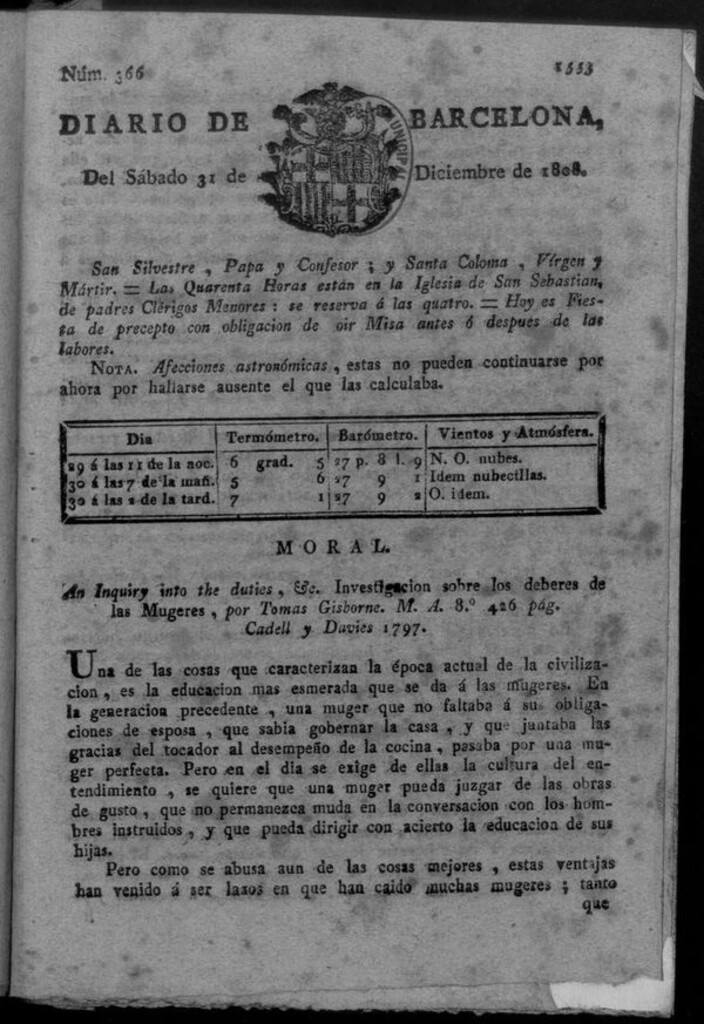 Núm. 366
1553
DIARIO DE BARCELONA,
Del Sábado 31 de Diciembre de 1808.
San Silvestre, Papa y Confesor; y Santa Coloma, Vírgen y
Mártir. = Las Quarenta Horas están en la Iglesia de San Sebastian,
de padres Clérigos Menores: se reserva á las quatro. = Hoy es Fies-
ta de precepto con obligacion de oir Misa antes ó despues de las
labores.
NOTA. Afecciones astronómicas, estas no pueden continuarse por
ahora por hallarse ausente el que las calculaba.
Dia Termómetro. Barómetro. Vientos y Atmósfera.
29 á las 11 de la noc. 6 grad. 5 27 p. 8 l. 9 N. O. nubes.
30 á las 7 de la mañ. 5 6 27 9 1 Idem nubecillas.
30 á las 2 de la tard. 7 1 27 9 2 O. idem.
MORAL.
An Inquiry into the duties, &c. Investigacion sobre los deberes de
las Mugeres, por Tomas Gisborne. M. A. 8.º 426 pág.
Cadell y Davies 1797.
Una de las cosas que caracterizan la época actual de la civiliza-
cion, es la educacion mas esmerada que se da á las mugeres. En
la generacion precedente, una muger que no faltaba á sus obliga-
ciones de esposa, que sabia gobernar la casa, y que juntaba las
gracias del tocador al desempeño de la cocina, pasaba por una mu-
ger perfecta. Pero en el dia se exige de ellas la cultura del en-
tendimiento, se quiere que una muger pueda juzgar de las obras
de gusto, que no permanezca muda en la conversacion con los hom-
bres instruidos, y que pueda dirigir con acierto la educacion de sus
hijas.
Pero como se abusa aun de las cosas mejores, estas ventajas
han venido á ser lazos en que han caido muchas mugeres; tanto
que